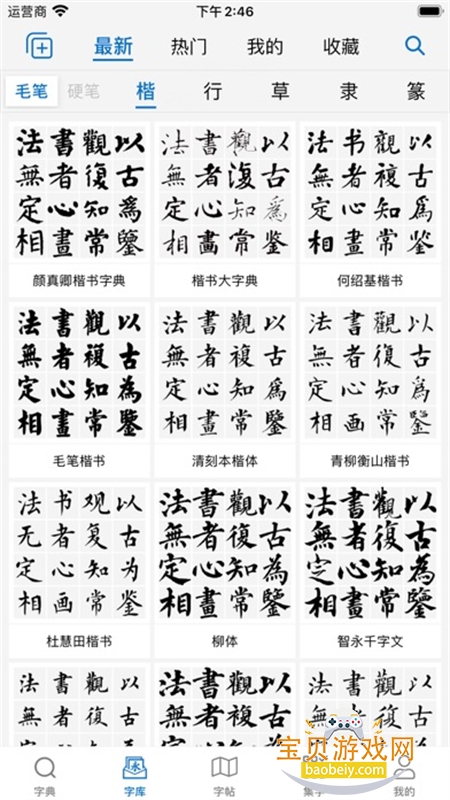 运营商 下午2:46
最新 热门 我的 收藏
毛笔 硬笔 楷 行 草 隶 篆
法書觀以 法書觀以 法书觀以
無者復古 無者復古 無者複古
定心知為 定心知為 定心知為
相畫常鑒 相畫常鉴 相畫常鉴
颜真卿楷书字典 楷书大字典 何绍基楷书
法書觀以 法書觀以 法書觀以
無者複古 無者複古 無者復古
定心知為 定心知爲 定心知爲
相畫常鑒 相畫常鑒 相画常鑒
毛笔楷书 清刻本楷体 青柳衡山楷书
法书观以 法書觀以 法書觀以
无者复古 無者復古 無者復古
定心知为 定心知為 定心知為
相画常鉴 相畫常鑒 相畫常鑒
杜慧田楷书 柳体 智永千字文
法書觀以 法書觀以 法書觀以
無者復古 無者復古 無者
定心知 定心知
宝贝游戏网
baobeiy.com
字典 字库 字帖 集字 我的